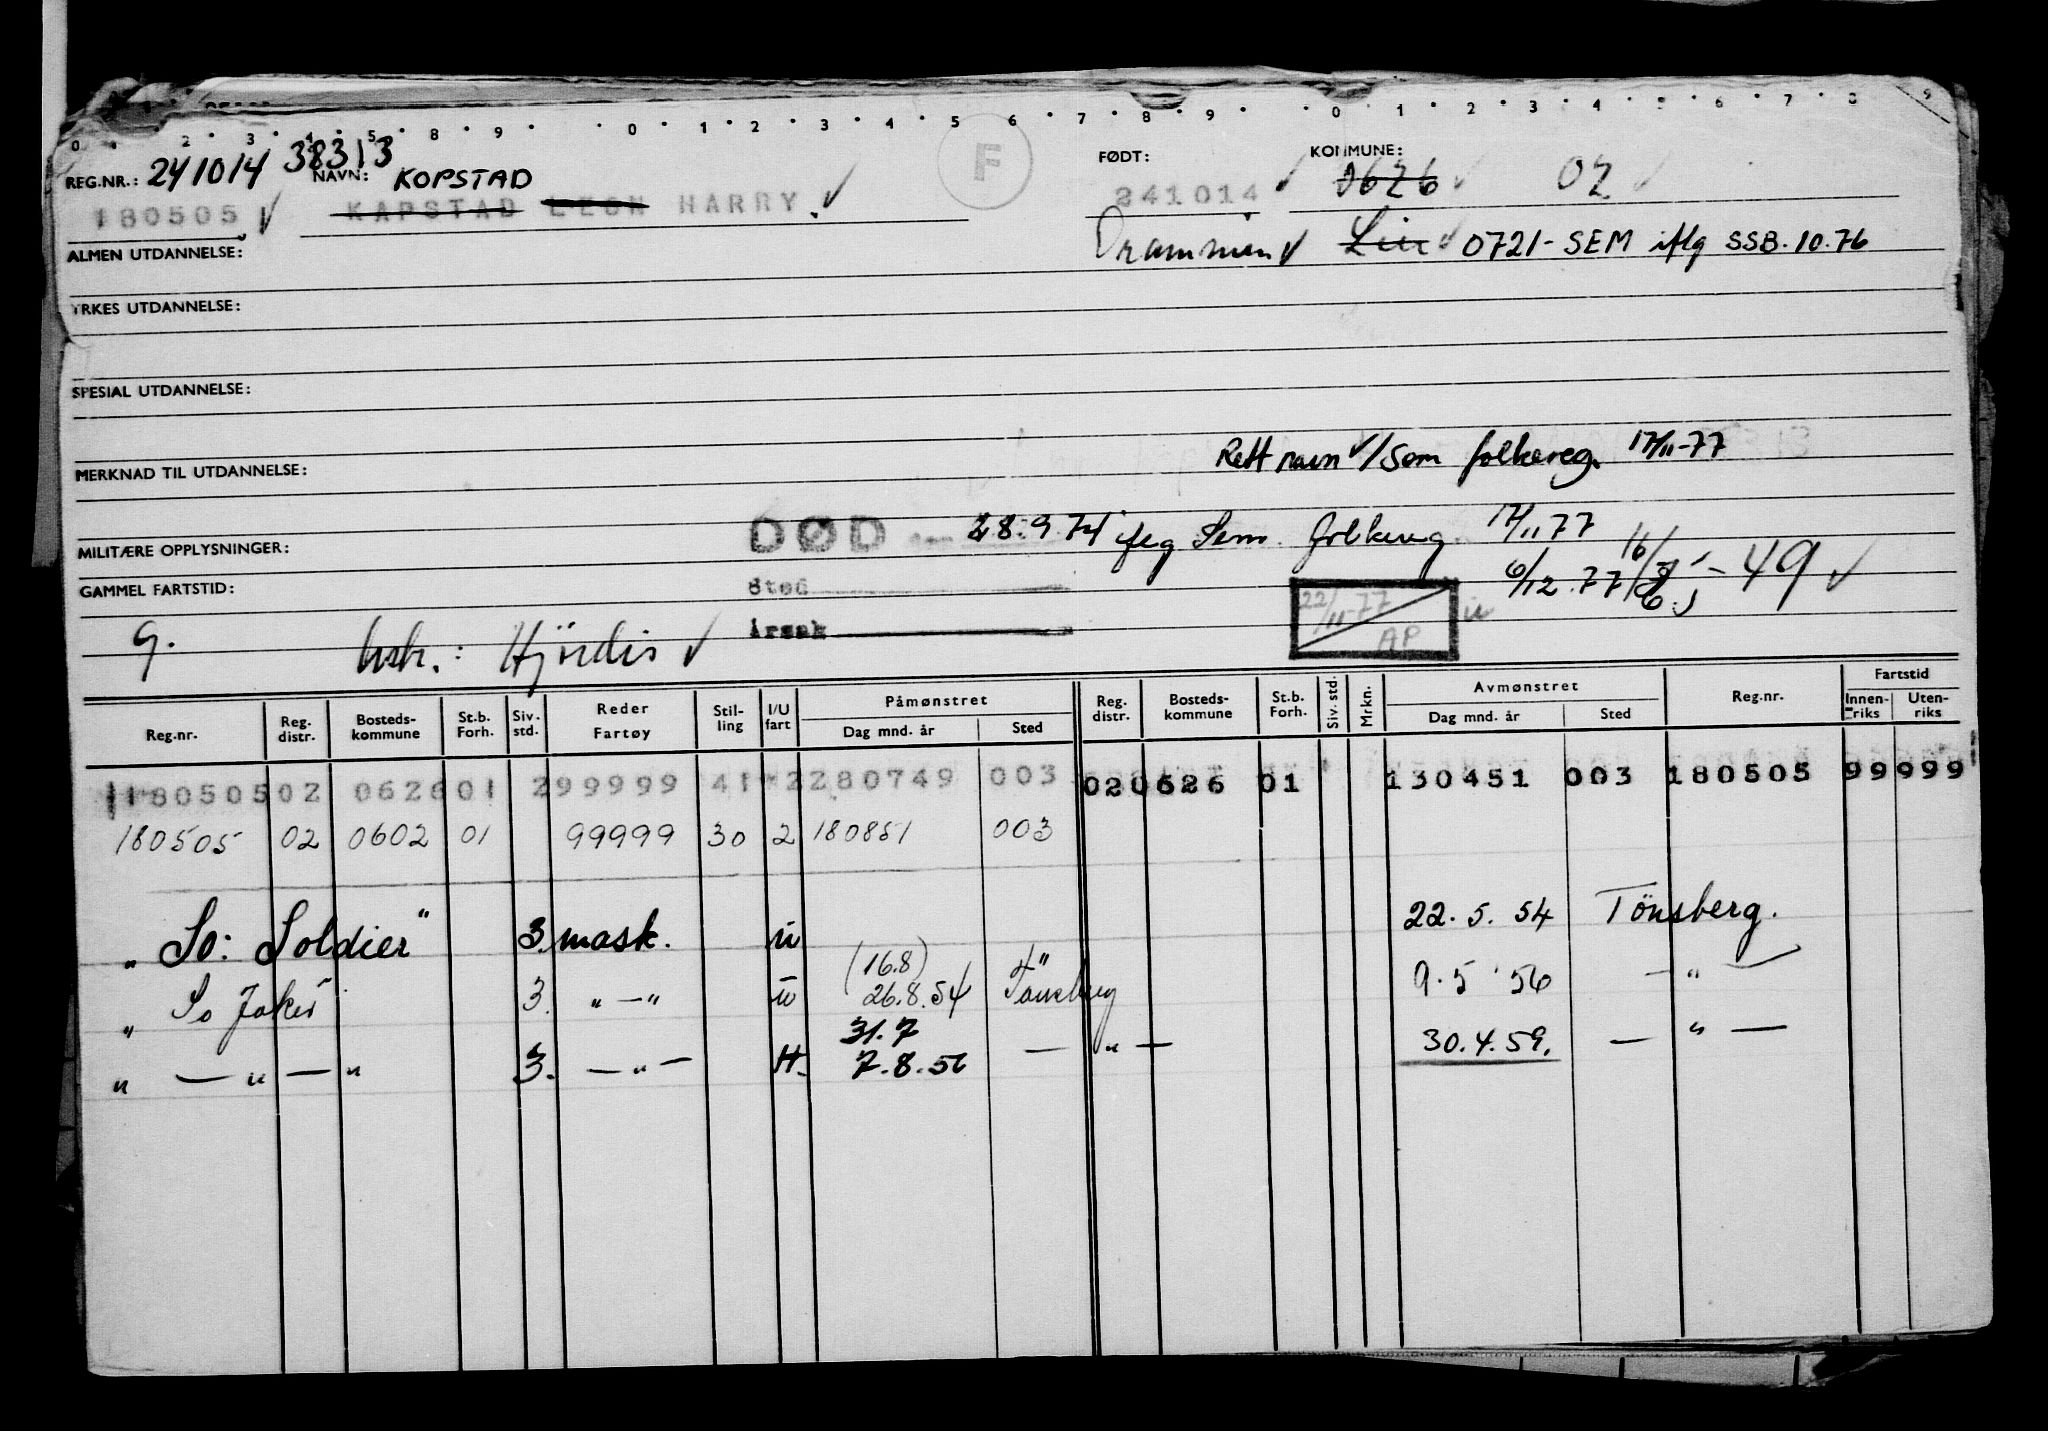 0 2 3 4 5 8 9 0 1 2 3 4 5 6 7 8 9 0 1 2 3 4 5 6 7 8 9
REG.NR.: 241014 38313 NAVN: KOPSTAD F FØDT: KOMMUNE: 0626 02
180505 KAPSTAD LEON HARRY 241014
ALMEN UTDANNELSE: Drammen Lier 0721-SEM iflg SSB.10.76
YRKES UTDANNELSE:
SPESIAL UTDANNELSE:
MERKNAD TIL UTDANNELSE: Rett navn / Sem folkereg. 17/11-77
MILITÆRE OPPLYSNINGER: DØD 28.9.74 Sem. folkereg 17/11 77
GAMMEL FARTSTID: Sted 6/12.77 16/5-49
22/11-77 AP
9. Hjördis Årsak
Reg.nr. Reg. distr. Bosteds-kommune St.b. Forh. Siv. std. Reder Fartøy Stil-ling I/U fart Påmønstret Dag mnd. år Sted Reg. distr. Bosteds-kommune St.b. Forh. Siv. std. Mrkn. Avmønstret Dag mnd. år Sted Reg.nr. Fartstid Innen-riks Uten-riks
180505 02 0626 01 2 99999 41 2 280749 003 02 0626 01 130451 003 180505 99999
180505 02 0602 01 99999 30 2 180851 003
" So: Soldier" 3. mask. u 22.5.54 Tönsberg.
(16.8)
" So Jaker 3. " — " u 26.8.54 Tønsberg 9.5 56 — " —
31.7
" — " — " 3. — " — H. 7.8.56 — " — 30.4.59. — " —